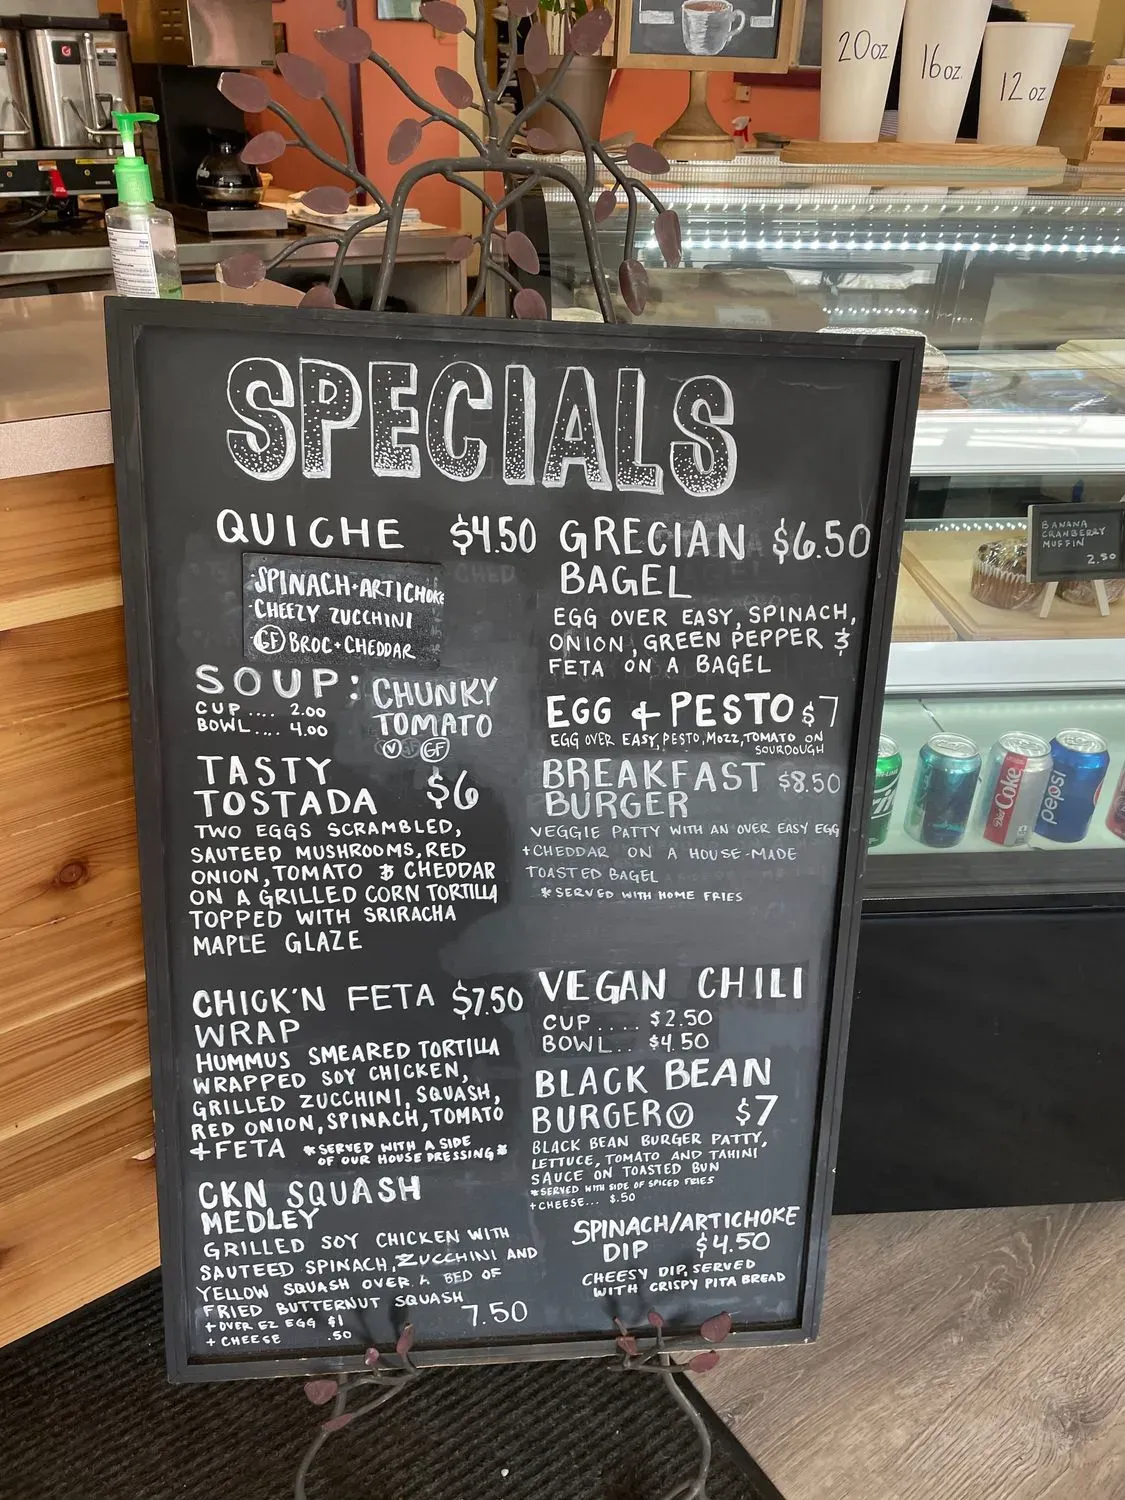 20oz
16oz.
12 oz
SPECIALS
QUICHE $4.50
·SPINACH+ARTICHOKE
·CHEEZY ZUCCHINI
GF BROC+CHEDDAR
SOUP: CHUNKY
TOMATO
CUP.... 2.00
BOWL.... 4.00
V GF
TASTY
TOSTADA $6
TWO EGGS SCRAMBLED,
SAUTEED MUSHROOMS, RED
ONION, TOMATO & CHEDDAR
ON A GRILLED CORN TORTILLA
TOPPED WITH SRIRACHA
MAPLE GLAZE
CHICK'N FETA $7.50
WRAP
HUMMUS SMEARED TORTILLA
WRAPPED SOY CHICKEN,
GRILLED ZUCCHINI, SQUASH,
RED ONION, SPINACH, TOMATO
+FETA *SERVED WITH A SIDE
OF OUR HOUSE DRESSING*
CKN SQUASH
MEDLEY
GRILLED SOY CHICKEN WITH
SAUTEED SPINACH, ZUCCHINI AND
YELLOW SQUASH OVER A BED OF
FRIED BUTTERNUT SQUASH
7.50
+OVER EZ EGG $1
+CHEESE .50
GRECIAN $6.50
BAGEL
EGG OVER EASY, SPINACH,
ONION, GREEN PEPPER &
FETA ON A BAGEL
EGG + PESTO $7
EGG OVER EASY, PESTO, MOZZ, TOMATO ON
SOURDOUGH
BREAKFAST $8.50
BURGER
VEGGIE PATTY WITH AN OVER EASY EGG
+CHEDDAR ON A HOUSE-MADE
TOASTED BAGEL
*SERVED WITH HOME FRIES
VEGAN CHILI
CUP.... $2.50
BOWL.. $4.50
BLACK BEAN
BURGER V $7
BLACK BEAN BURGER PATTY,
LETTUCE, TOMATO AND TAHINI
SAUCE ON TOASTED BUN
*SERVED WITH SIDE OF SPICED FRIES
+CHEESE... $.50
SPINACH/ARTICHOKE
DIP $4.50
CHEESY DIP, SERVED
WITH CRISPY PITA BREAD
BANANA
CRANBERRY
MUFFIN
2.50
Diet Coke
pepsi